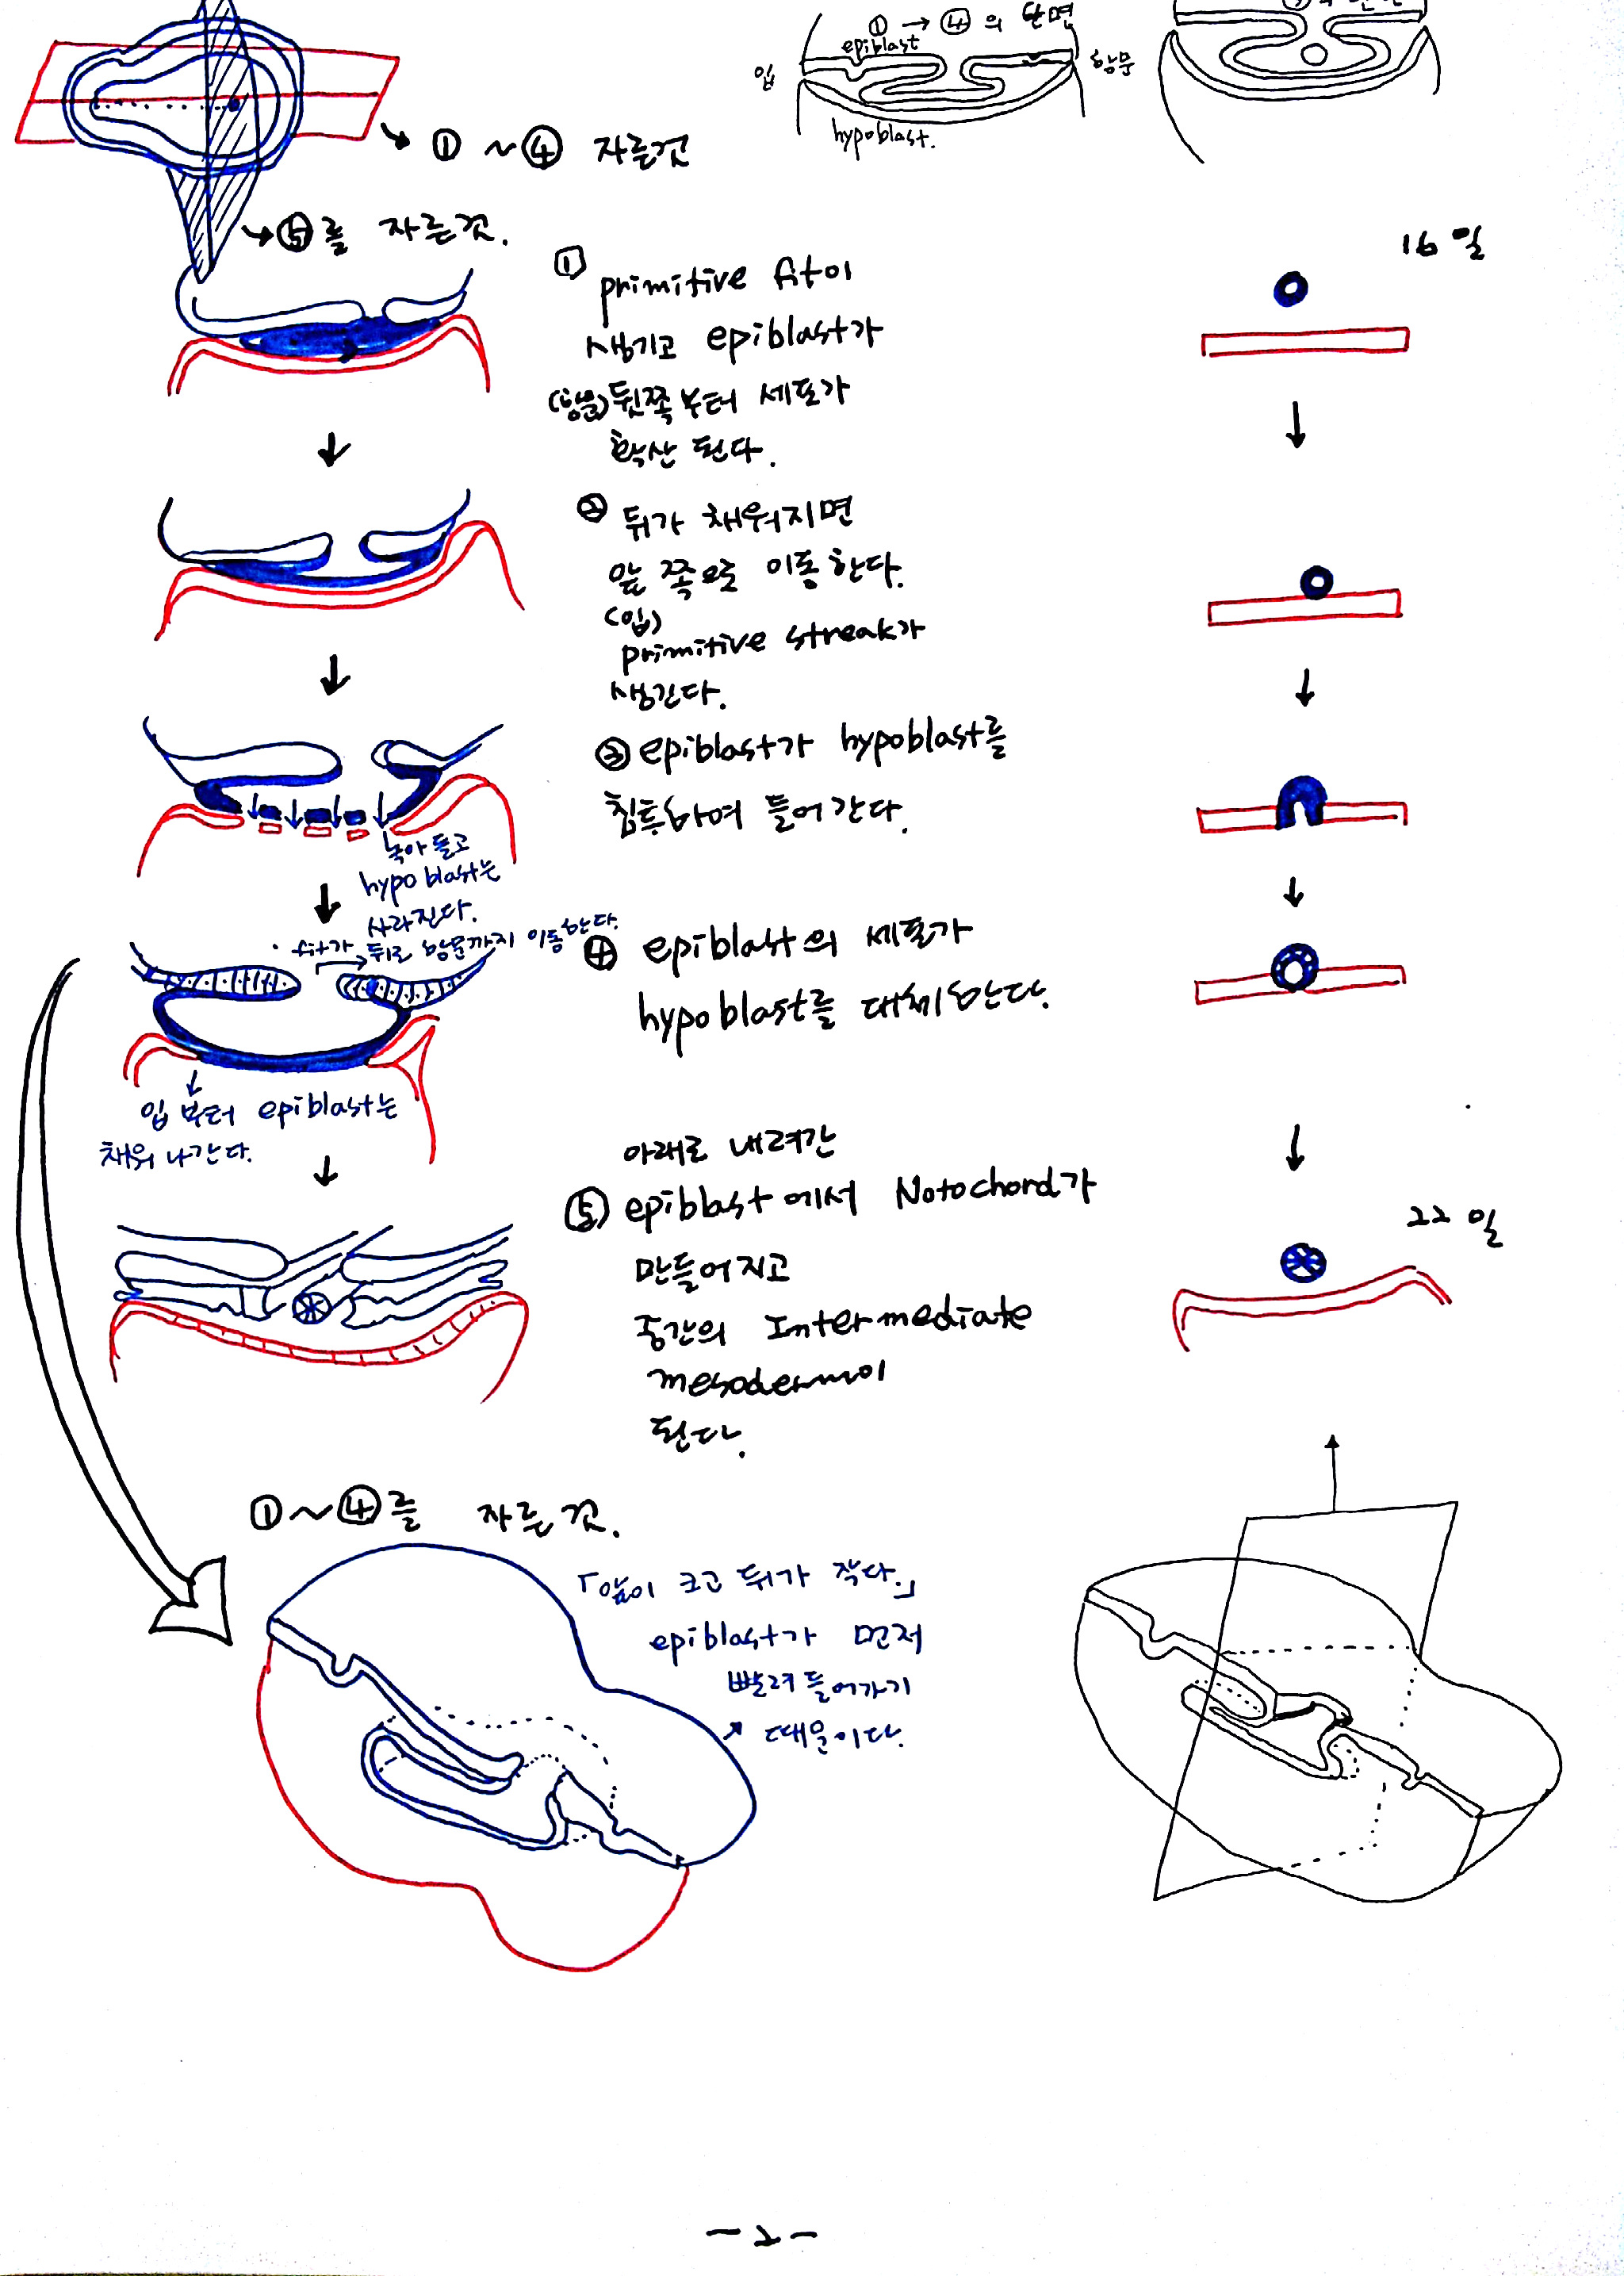 ① → ④ 의 단면
epiblast
입
항문
hypoblast.
① ~ ④ 자른것
→ ⑤를 자른것.
① primitive fit이
생기고 epiblast가
(항문) 뒷쪽부터 세포가
확산 된다.
16일
② 뒤가 채워지면
앞 쪽으로 이동한다.
(입)
primitive streak가
생긴다.
③ epiblast가 hypoblast를
침투하여 들어간다.
녹아 들고
hypoblast는
사라진다.
fit가 뒤로 항문까지 이동한다.
④ epiblast의 세포가
hypoblast를 대체한다.
입 부터 epiblast는
채워 나간다.
아래로 내려간
⑤ epiblast에서 Notochord가
만들어지고
중간의 Intermediate
mesoderm이
된다.
22일
① ~ ④를 자른것.
「앞이 크고 뒤가 작다.」
epiblast가 먼저
빨려들어가기
때문이다.